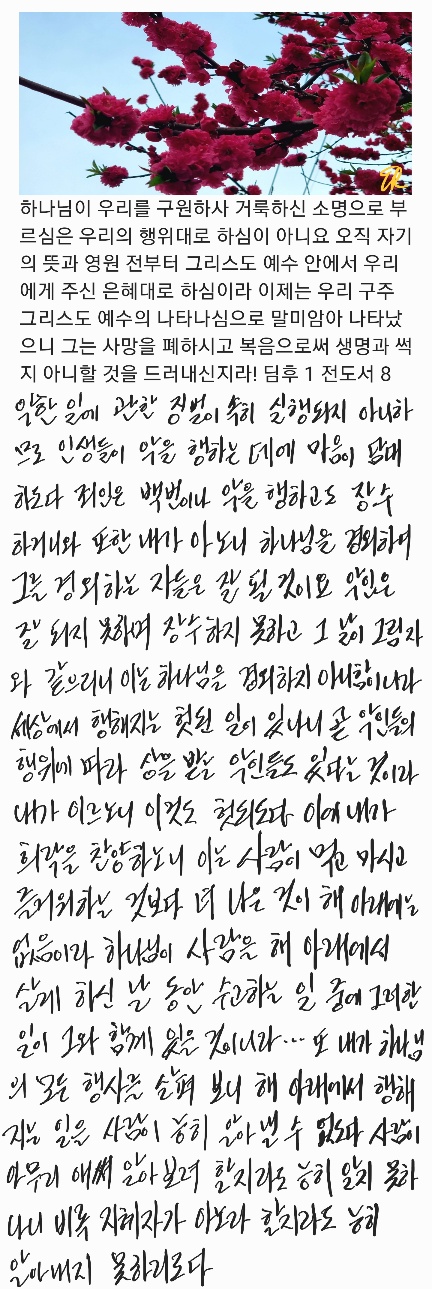 하나님이 우리를 구원하사 거룩하신 소명으로 부
르심은 우리의 행위대로 하심이 아니요 오직 자기
의 뜻과 영원 전부터 그리스도 예수 안에서 우리
에게 주신 은혜대로 하심이라 이제는 우리 구주
그리스도 예수의 나타나심으로 말미암아 나타났
으니 그는 사망을 폐하시고 복음으로써 생명과 썩
지 아니할 것을 드러내신지라! 딤후 1 전도서 8
악한 일에 관한 징벌이 속히 실행되지 아니하
므로 인생들이 악을 행하는 데에 마음이 담대
하도다 죄인은 백번이나 악을 행하고도 장수
하거니와 또한 내가 아노니 하나님을 경외하여
그를 경외하는 자들은 잘 될 것이요 악인은
잘 되지 못하며 장수하지 못하고 그 날이 그림자
와 같으리니 이는 하나님을 경외하지 아니함이니라
세상에서 행해지는 헛된 일이 있나니 곧 악인들의
행위에 따라 상을 받는 악인들도 있다는 것이라
내가 이르노니 이것도 헛되도다 이에 내가
희락을 찬양하노니 이는 사람이 먹고 마시고
즐거워하는 것보다 더 나은 것이 해 아래에는
없음이라 하나님이 사람을 해 아래에서
살게 하신 날 동안 수고하는 일 중에 그러한
일이 그와 함께 있을 것이니라... 또 내가 하나님
의 모든 행사를 살펴 보니 해 아래에서 행해
지는 일을 사람이 능히 알아낼 수 없도다 사람이
아무리 애써 알아보려 할지라도 능히 알지 못하
나니 비록 지혜자가 아노라 할지라도 능히
알아내지 못하리로다